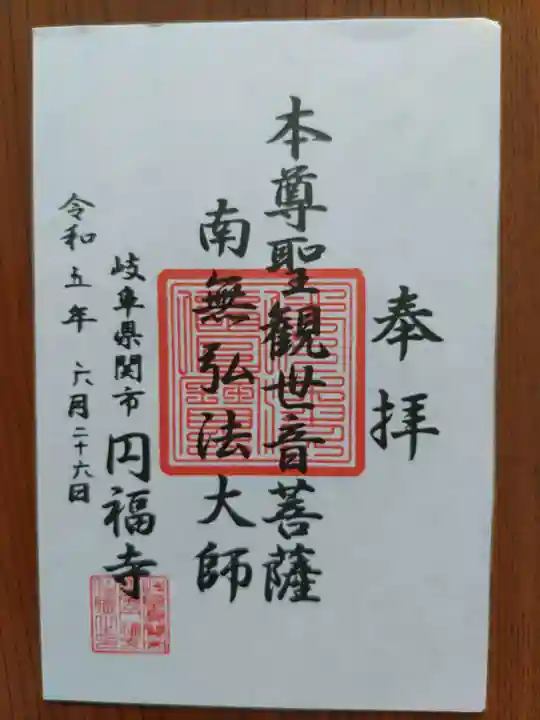 奉拝
本尊聖観世音菩薩
南無弘法大師
岐阜県関市 円福寺
令和五年 六月二十六日